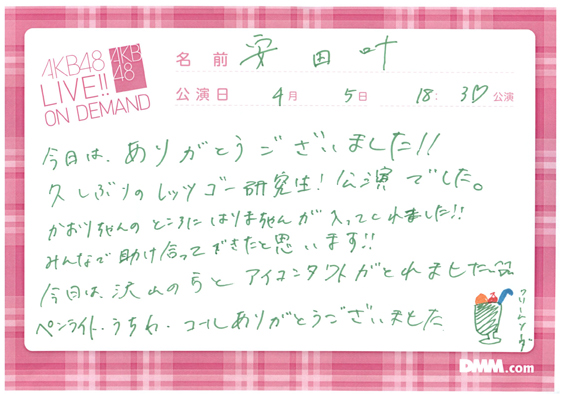 AKB48
LIVE!!
ON DEMAND
AKB
48
名前 安田叶
公演日 4月 5日 18:30公演
今日は、ありがとうございました!!
久しぶりのレッツゴー研究生!公演でした。
かおりちゃんのところにはりまちゃんが入ってくれました!!
みんなで助け合ってできたと思います!!
今日は、沢山の方とアイコンタクトがとれました
ペンライト・うちわ・コールありがとうございました
クリームソーダ
DMM.com